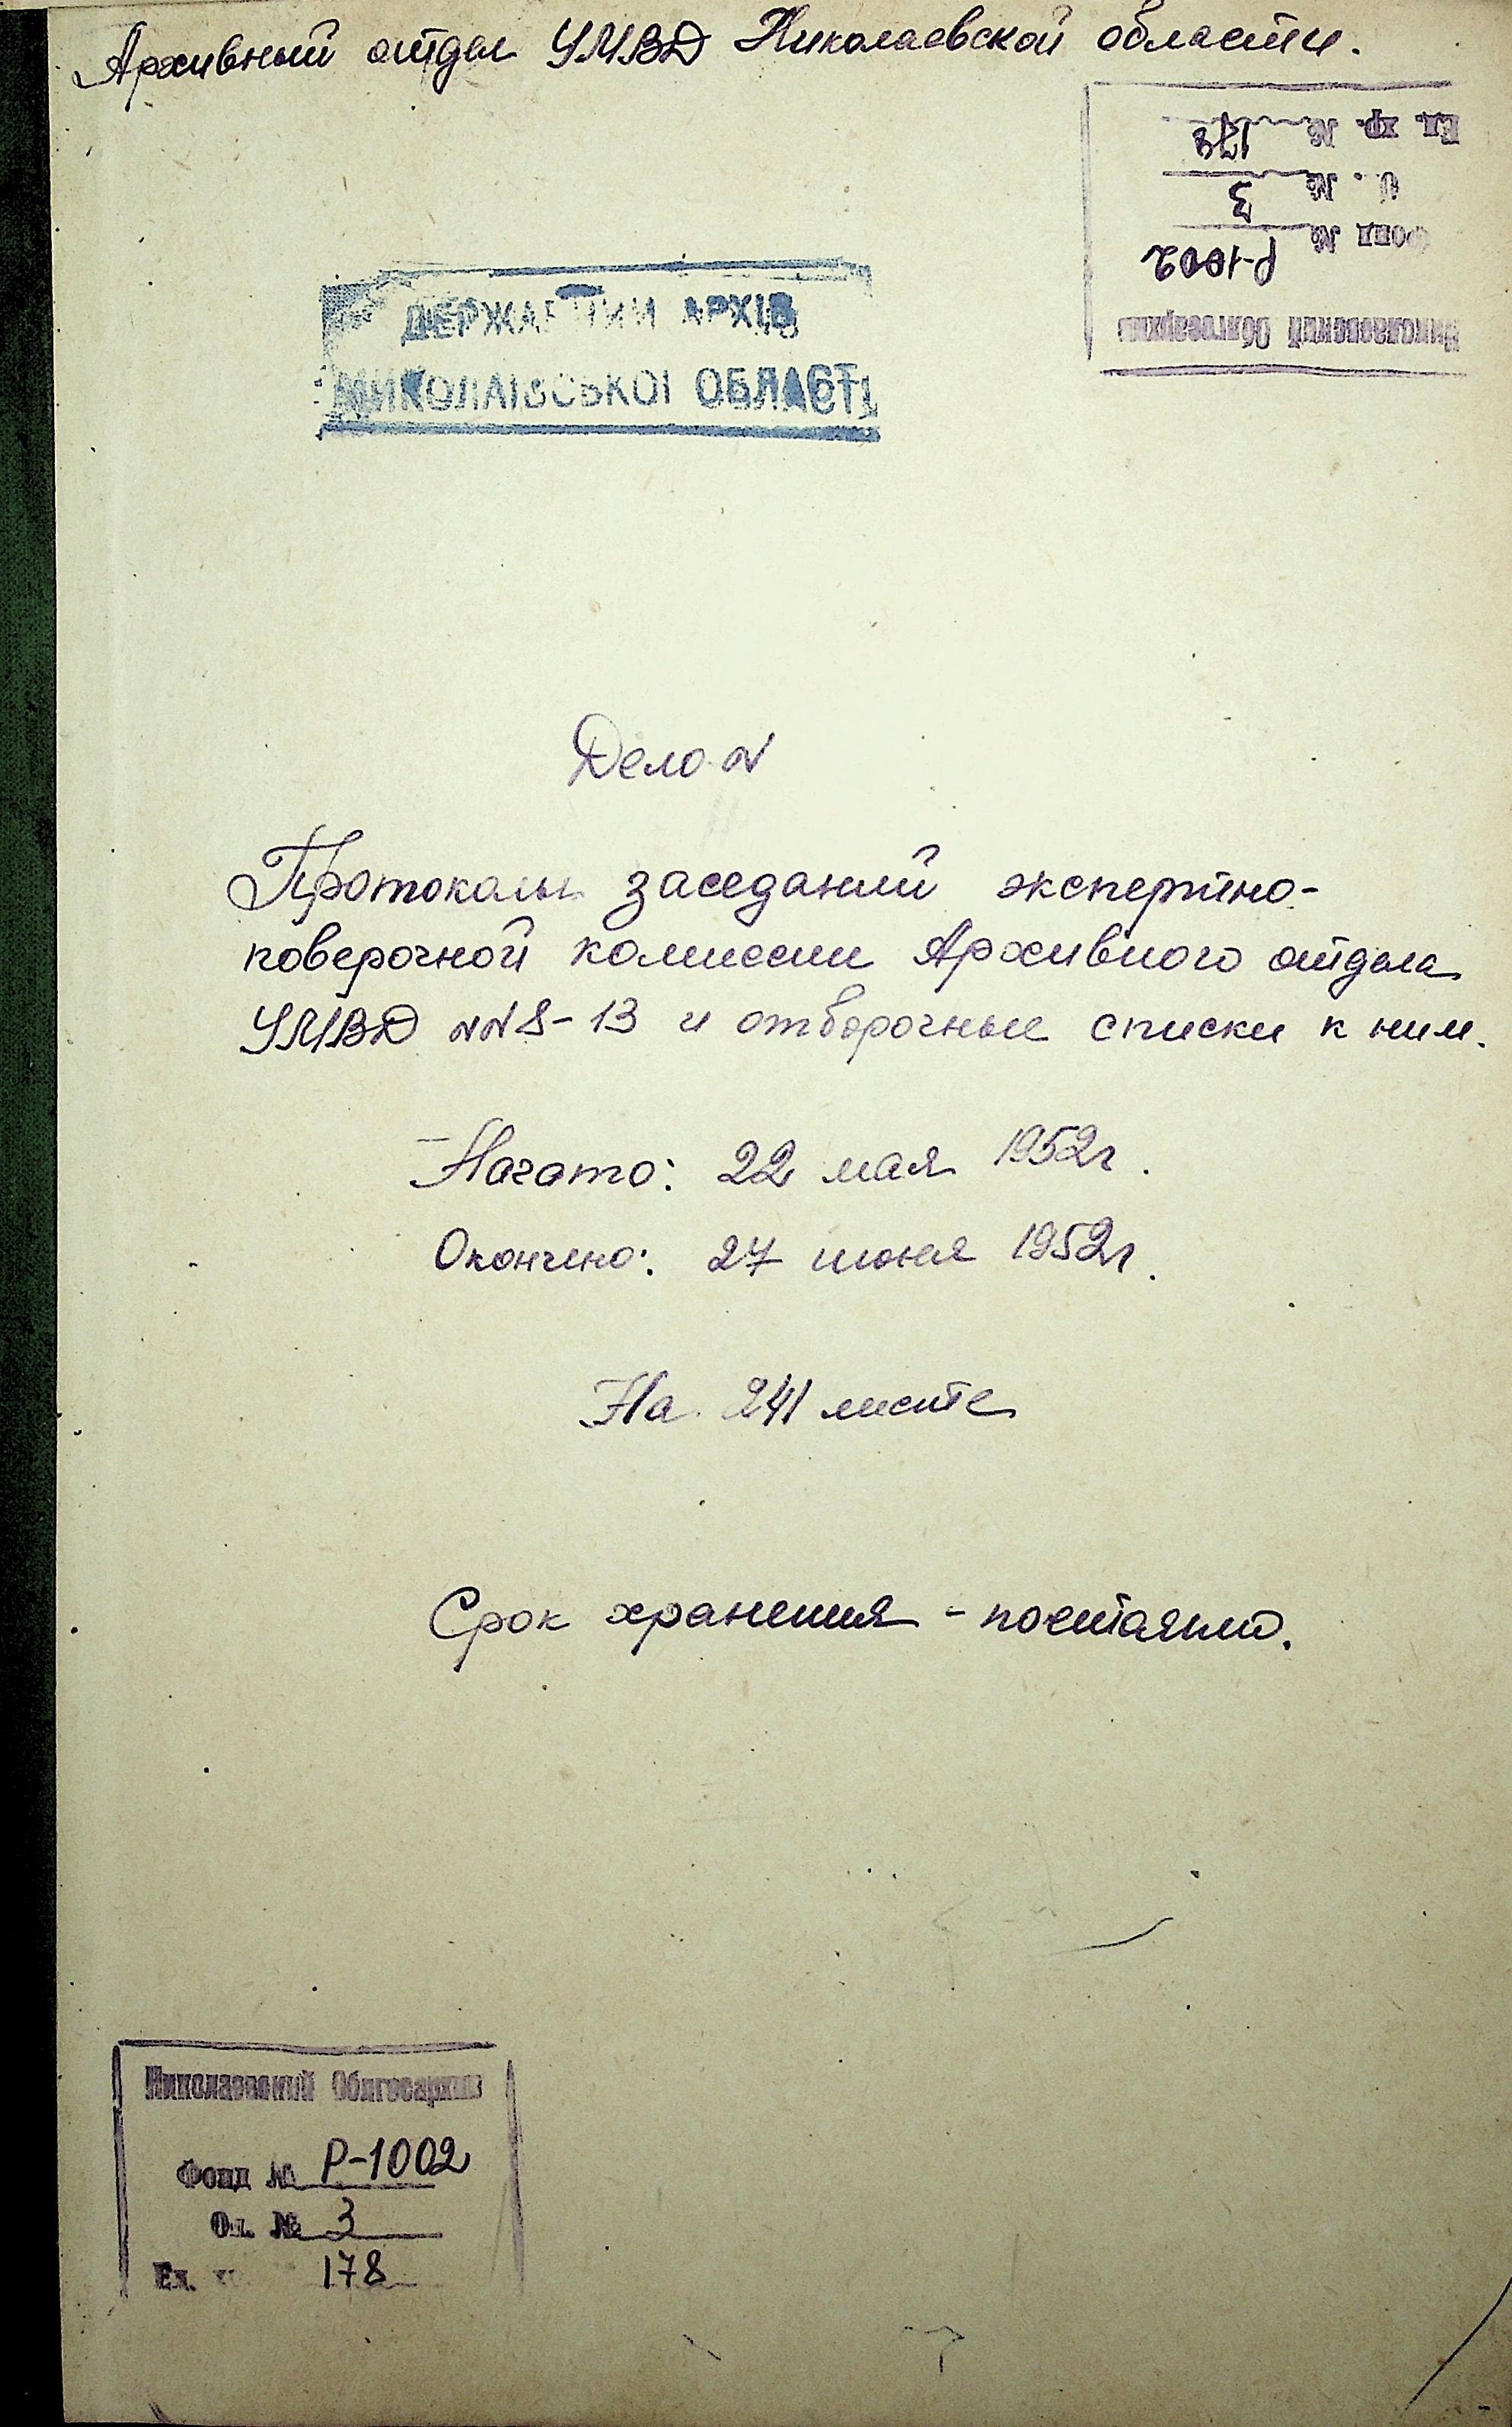 Архивный отдел УМВД Николаевской области.
Николаевский Облгосархив
Фонд № Р-1002
О. № 3
Ед. хр. № 178
ДЕРЖАВНИЙ АРХІВ
МИКОЛАЇВСЬКОЇ ОБЛАСТІ
Дело N
Протоколы заседаний экспертно-
поверочной комиссии Архивного отдела
УМВД NN 8-13 и отборочные списки к ним.
Начато: 22 мая 1952г.
Окончено: 27 июня 1952г.
На 241 листе
Срок хранения - постоянно.
Николаевский Облгосархив
Фонд № Р-1002
Оп. № 3
Ед. 178